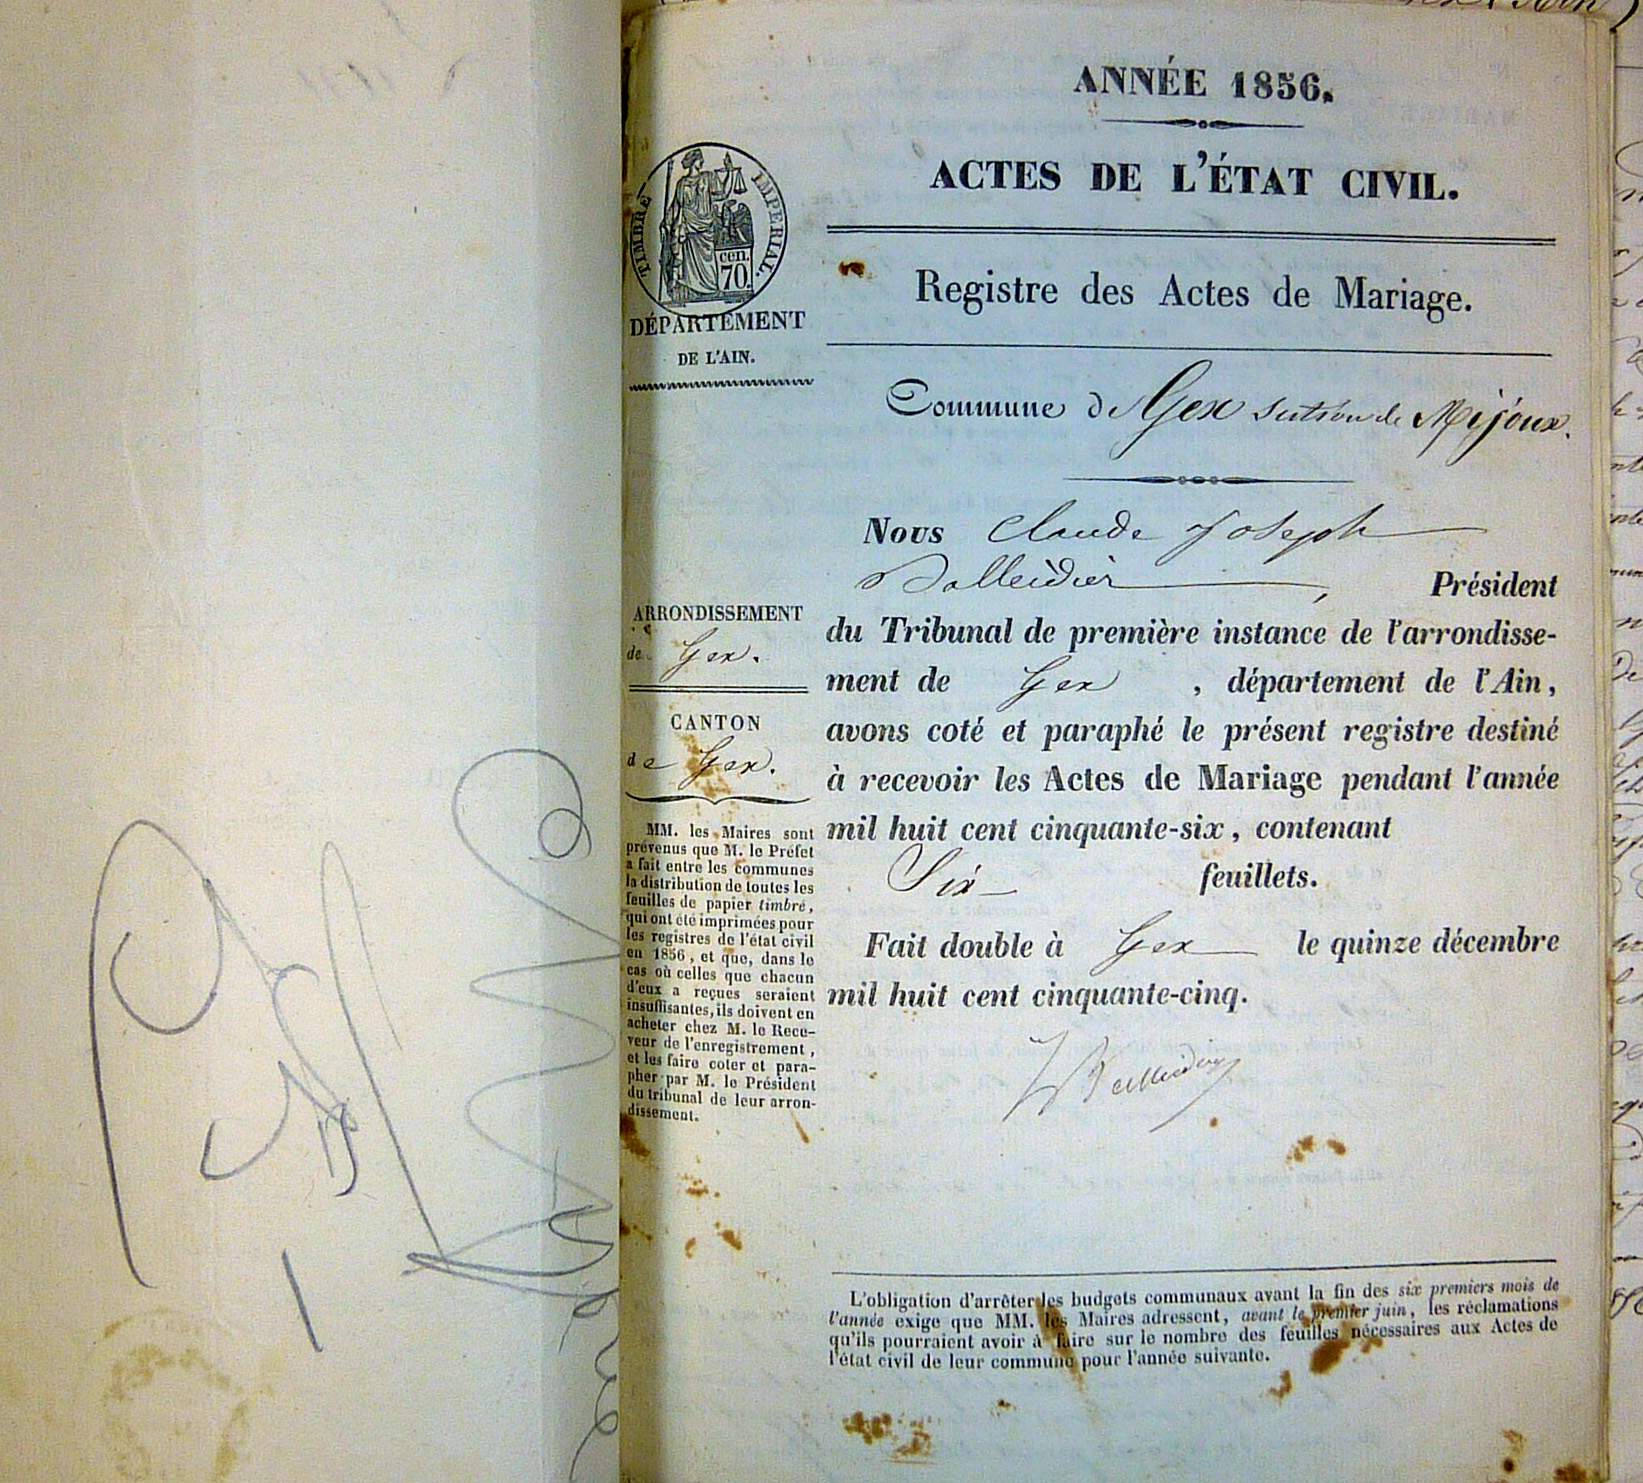 ANNÉE 1856.
ACTES DE L'ÉTAT CIVIL.
TIMBRE IMPERIAL.
cen.
70.
DÉPARTEMENT
DE L'AIN.
Registre des Actes de Mariage.
Commune de Gex section de Mijoux.
ARRONDISSEMENT
de Gex.
CANTON
de Gex.
MM. les Maires sont
prévenus que M. le Préfet
a fait entre les communes
la distribution de toutes les
feuilles de papier timbré,
qui ont été imprimées pour
les registres de l'état civil
en 1856, et que, dans le
cas où celles que chacun
d'eux a reçues seraient
insuffisantes, ils doivent en
acheter chez M. le Rece-
veur de l'enregistrement,
et les faire coter et para-
pher par M. le Président
du tribunal de leur arron-
dissement.
Nous Claude Joseph
Balleidier, Président
du Tribunal de première instance de l'arrondisse-
ment de Gex, département de l'Ain,
avons coté et paraphé le présent registre destiné
à recevoir les Actes de Mariage pendant l'année
mil huit cent cinquante-six, contenant
Six feuillets.
Fait double à Gex le quinze décembre
mil huit cent cinquante-cinq.
Balleidier
L'obligation d'arrêter les budgets communaux avant la fin des six premiers mois de
l'année exige que MM. les Maires adressent, avant le premier juin, les réclamations
qu'ils pourraient avoir à faire sur le nombre des feuilles nécessaires aux Actes de
l'état civil de leur commune pour l'année suivante.